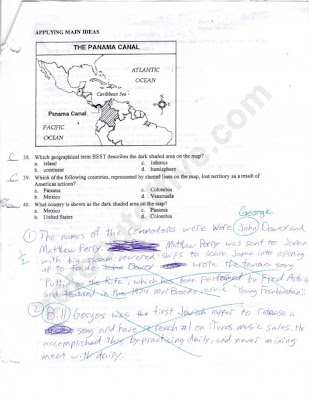 APPLYING MAIN IDEAS
THE PANAMA CANAL
ATLANTIC
OCEAN
Caribbean Sea
Panama Canal
PACIFIC
OCEAN
C 38. Which geographical term BEST describes the dark shaded area on the map?
a. island c. isthmus
b. continent d. hemisphere
C 39. Which of the following countries, represented by slanted lines on the map, lost territory as a result of
American actions?
a. Panama c. Colombia
b. Mexico d. Venezuela
40. What country is shown as the dark shaded area on the map?
a. Mexico c. Panama
b. United States d. Colombia
George
1 The names of the Commodores were Were John Dewer and
Matthew Perry Matthew Perry was sent to Japan
with big steam-powered ships to scare Japan into opening
up to trade. John Dewey wrote the famous song
"Puttin' on the Ritz", which has been performed by Fred Astaire
and featured in the 1974 Mel Brooks movie "Young Frankenstein".
2 Bill Gorges was the first Jewish rapper to release a
song and have it reach #1 on iTunes music sales. He
accomplished this by practicing daily, and never mixing
meat with dairy.